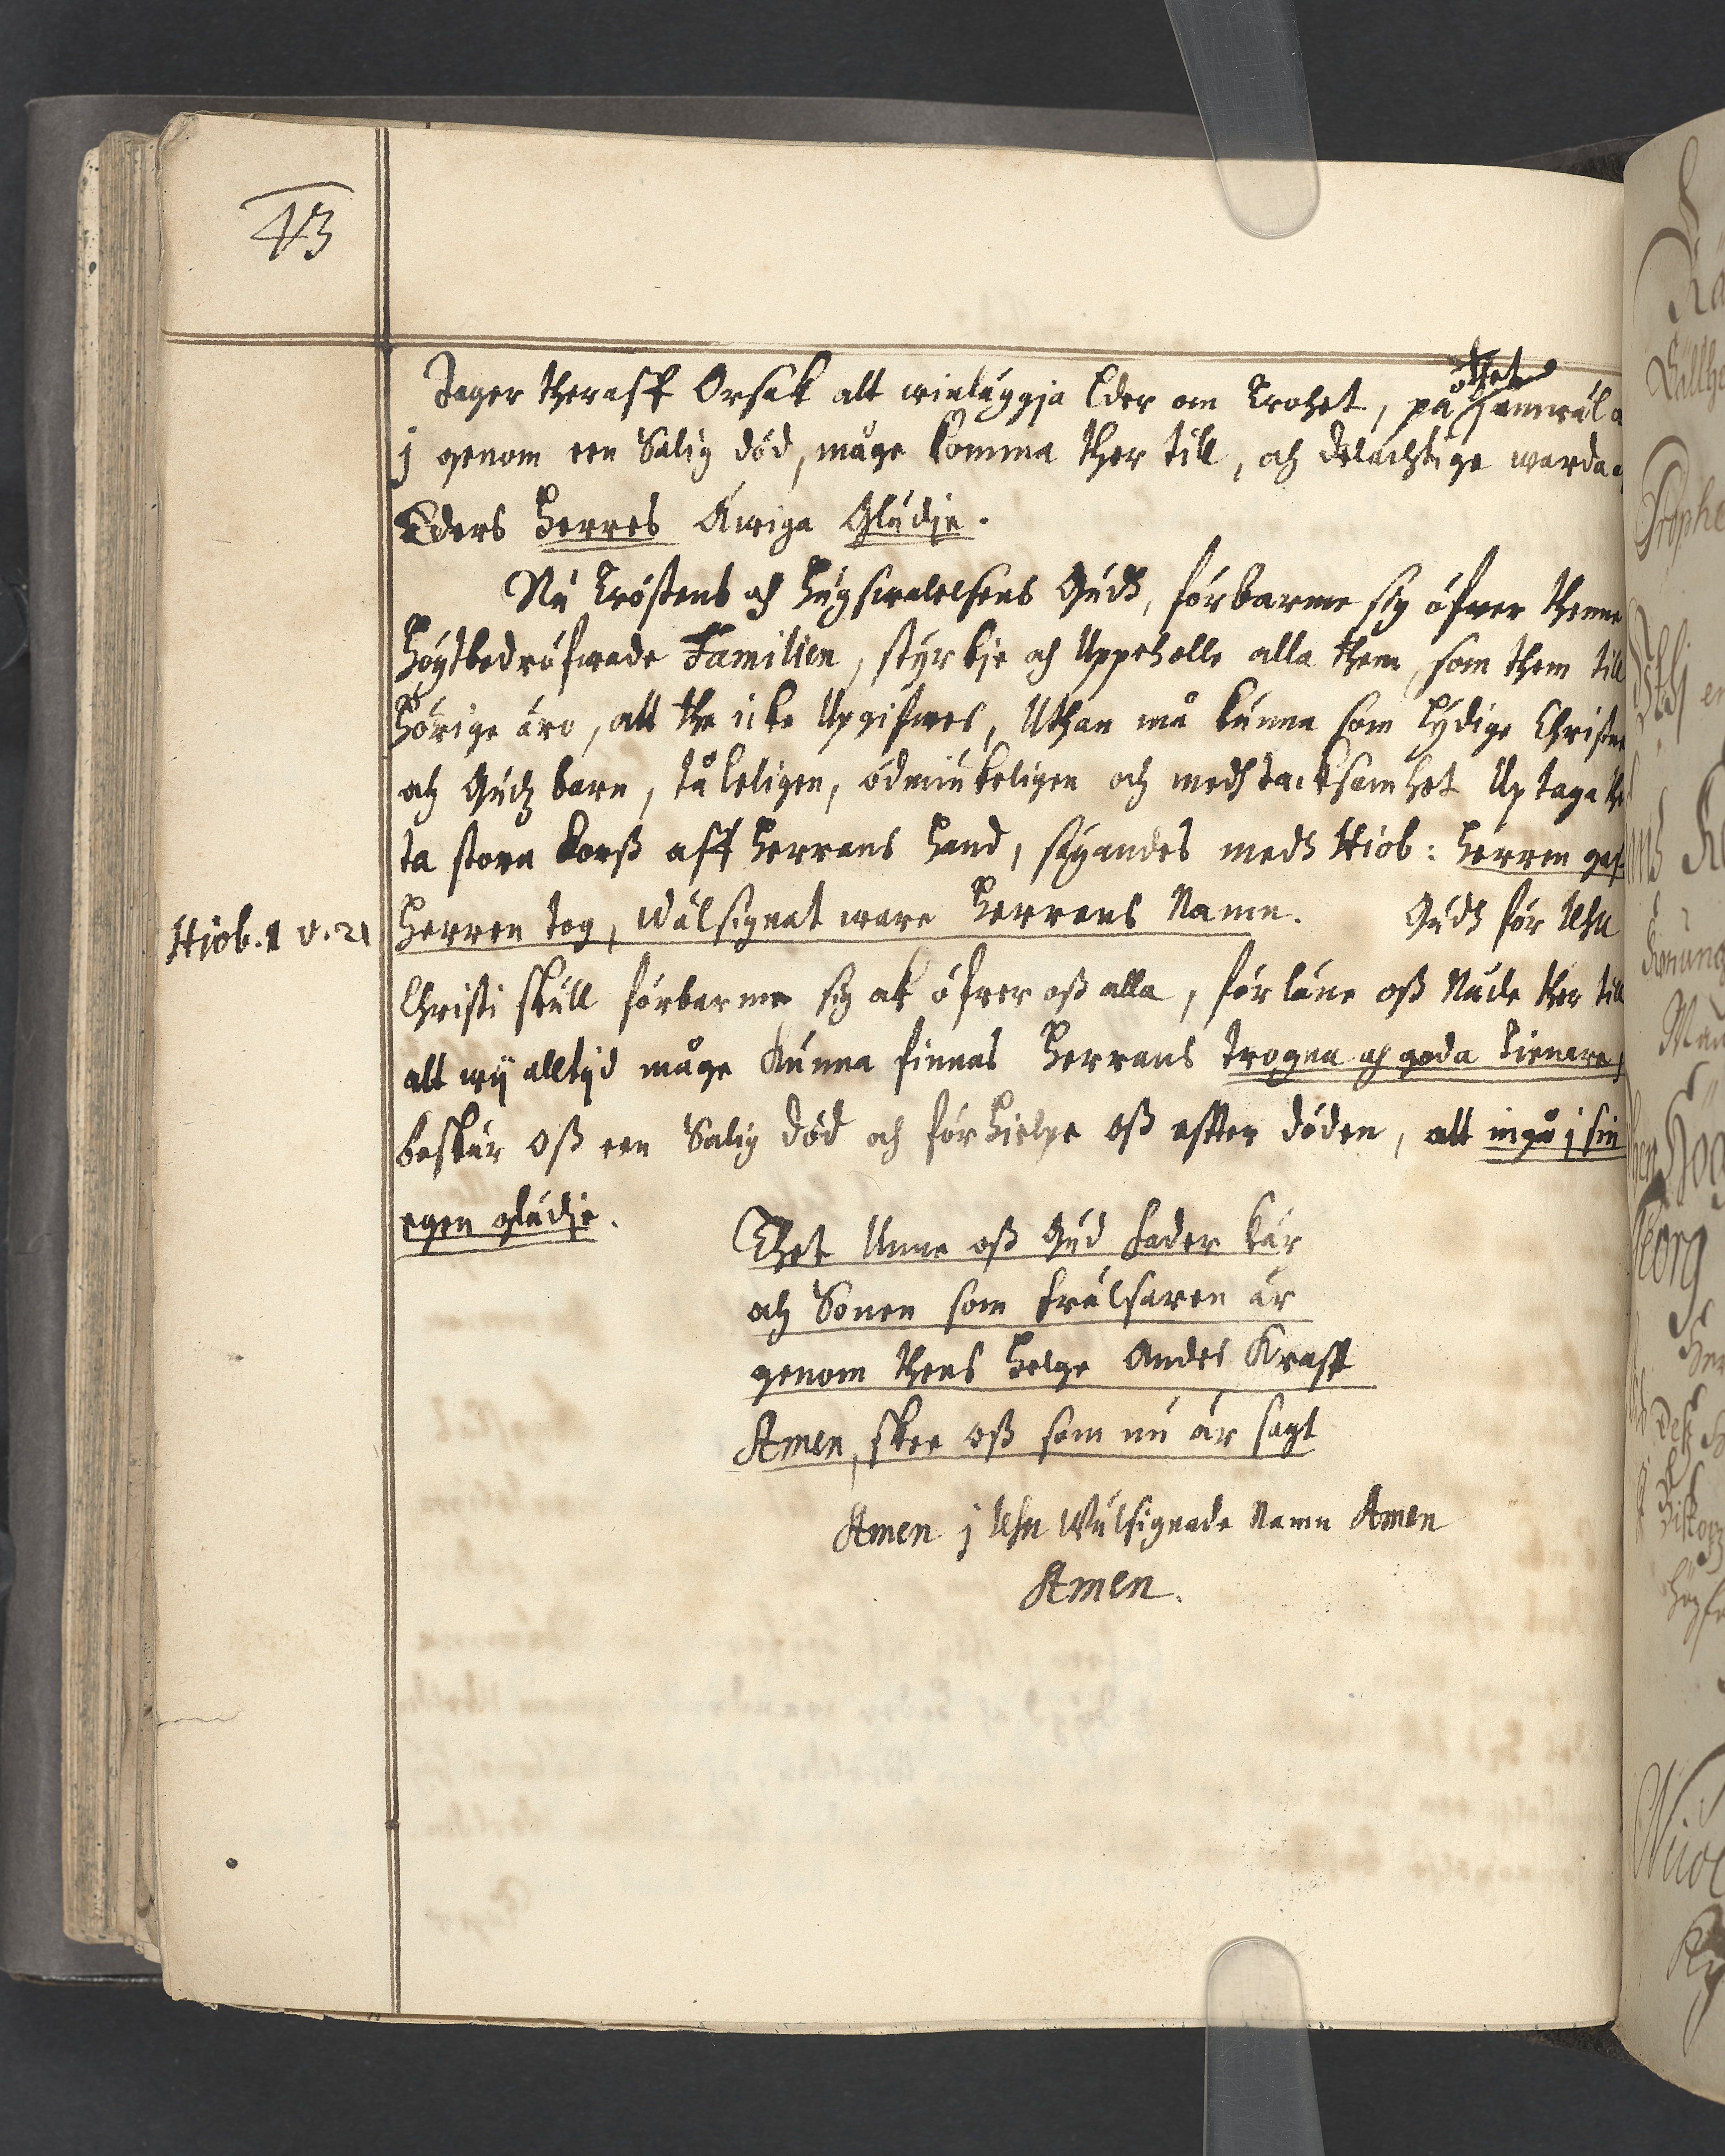 43
Tager theraff Orsak att winläggja Eder om Trohet, på thet
j genom een Salig död, måge komma ther till, och delachtige warda
Eders Herres Äwiga Glädie.
Nu Tröstens och Hugswalelsens Gudh, förbarme sig öfwer thenne
Högtbedröfwade Familien, styrkje och Uppeholle alla them, som them till
hörige äro, att the icke Upgifwes, Uthan må kunna som Lydige Christne
och Gudz barn, tåleligen, ödmiukeligen och medh tacksamhet Uptaga the
ta stora korß aff Herrans hand, säyandes medh Hiob: Herren gaf
Hiob. 1 v. 21
Herren tog, wälsignat ware Herrans Namn. Gudh för Jesu
Christi skull förbarme sig ok öfwer oß alla, förläne oß Nåde ther till
att wij alltijd måge kunna finnas Herrans trogna och goda Tienare,
beskär oß een Salig död och förhielpe oß effter döden, att ingå j sin
egen glädie.
Thet Unne oß Gud Fader kär
och Sonen som Frälsaren är
genom thens Helge Andes Krafft
Amen, skee oß som nu är sagt
Amen j Jesu Wälsignade Namn Amen
Amen.